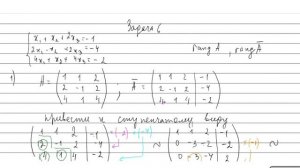 Задача 6
x₁ + x₂ + 2x₃ = -1
2x₁ - x₂ + 2x₃ = -4
4x₁ + x₂ + 4x₃ = -2
rang A , rang Ā
1) A = (1 1 2 2 -1 2 4 1 4) , Ā = (1 1 2 | -1 2 -1 2 | -4 4 1 4 | -2)
привести к ступенчатому виду
1 1 2 | -1 ·(-2) ·(-4) ~ 1 1 2 | -1
2 -1 2 | -4 0 -3 -2 | -2 ·(-1) ~
4 1 4 | -2 0 -3 -4 | 2